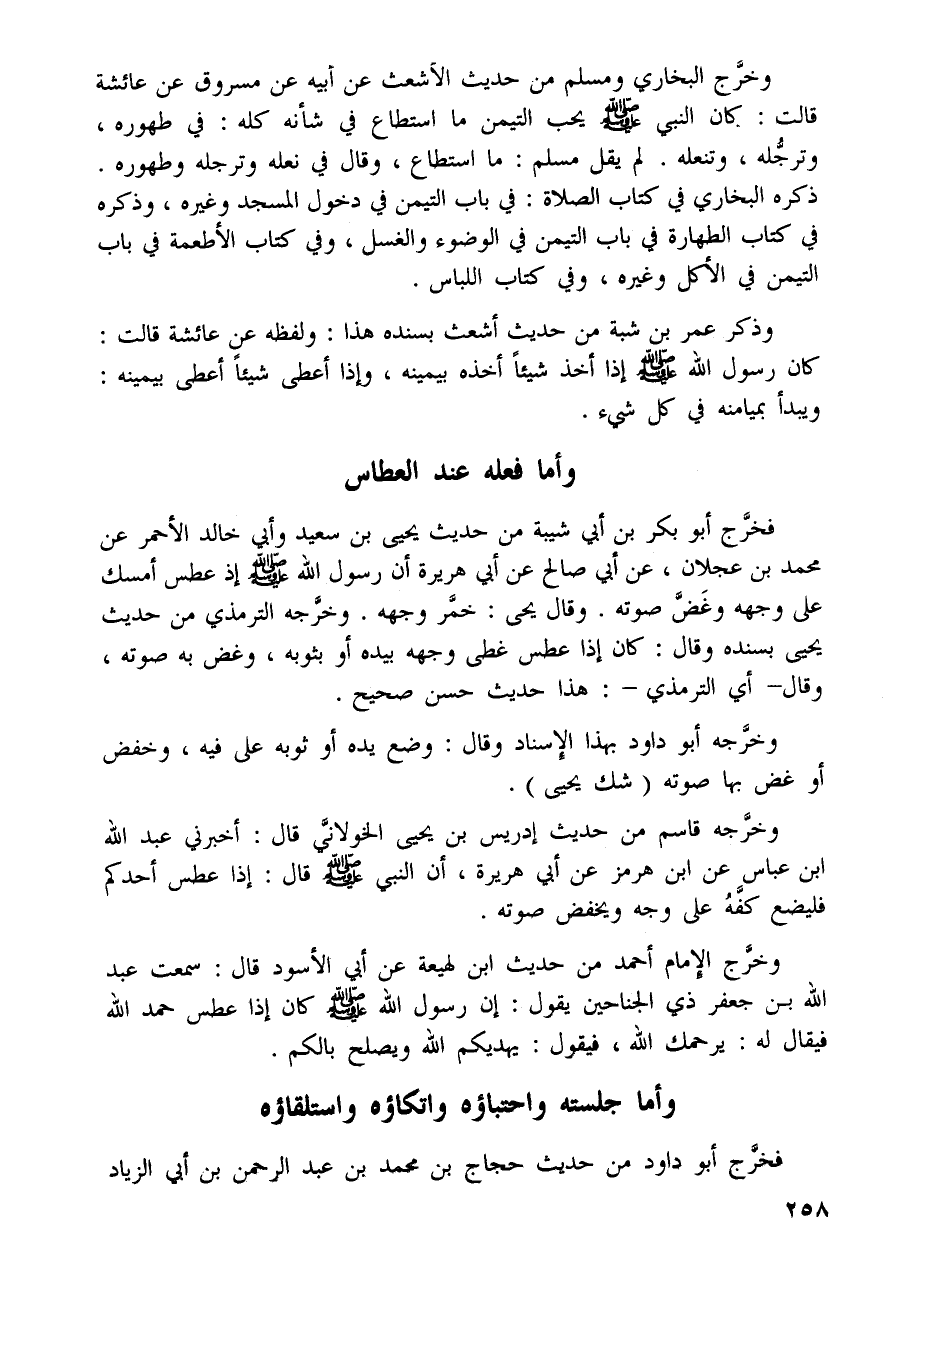 وخرَّج البخاري ومسلم من حديث الأشعث عن أبيه عن مسروق عن عائشة
قالت : كان النبي ﷺ يحب التيمن ما استطاع في شأنه كله : في طهوره ،
وترجُّله ، وتنعله . لم يقل مسلم : ما استطاع ، وقال في نعله وترجله وطهوره .
ذكره البخاري في كتاب الصلاة : في باب التيمن في دخول المسجد وغيره ، وذكره
في كتاب الطهارة في باب التيمن في الوضوء والغسل ، وفي كتاب الأطعمة في باب
التيمن في الأكل وغيره ، وفي كتاب اللباس .
وذكر عمر بن شبة من حديث أشعث بسنده هذا : ولفظه عن عائشة قالت :
كان رسول الله ﷺ إذا أخذ شيئاً أخذه بيمينه ، وإذا أعطى شيئاً أعطى بيمينه :
ويبدأ بميامنه في كل شيء .
وأما فعله عند العطاس
فخرَّج أبو بكر بن أبي شيبة من حديث يحيى بن سعيد وأبي خالد الأحمر عن
محمد بن عجلان ، عن أبي صالح عن أبي هريرة أن رسول الله ﷺ إذ عطس أمسك
على وجهه وغَضَّ صوته . وقال يحى : خمَّر وجهه . وخرَّجه الترمذي من حديث
يحيى بسنده وقال : كان إذا عطس غطى وجهه بيده أو بثوبه ، وغض به صوته ،
وقال– أي الترمذي – : هذا حديث حسن صحيح .
وخرَّجه أبو داود بهذا الإسناد وقال : وضع يده أو ثوبه على فيه ، وخفض
أو غض بها صوته ( شك يحيى ) .
وخرَّجه قاسم من حديث إدريس بن يحيى الخولانيَّ قال : أخبرني عبد الله
ابن عباس عن ابن هرمز عن أبي هريرة ، أن النبي ﷺ قال : إذا عطس أحدكم
فليضع كفَّهُ على وجه ويخفض صوته .
وخرَّج الإمام أحمد من حديث ابن لهيعة عن أبي الأسود قال : سمعت عبد
الله بن جعفر ذي الجناحين يقول : إن رسول الله ﷺ كان إذا عطس حمد الله
فيقال له : يرحمك الله ، فيقول : يهديكم الله ويصلح بالكم .
وأما جلسته واحتباؤه واتكاؤه واستلقاؤه
فخرَّج أبو داود من حديث حجاج بن محمد بن عبد الرحمن بن أبي الزياد
٢٥٨